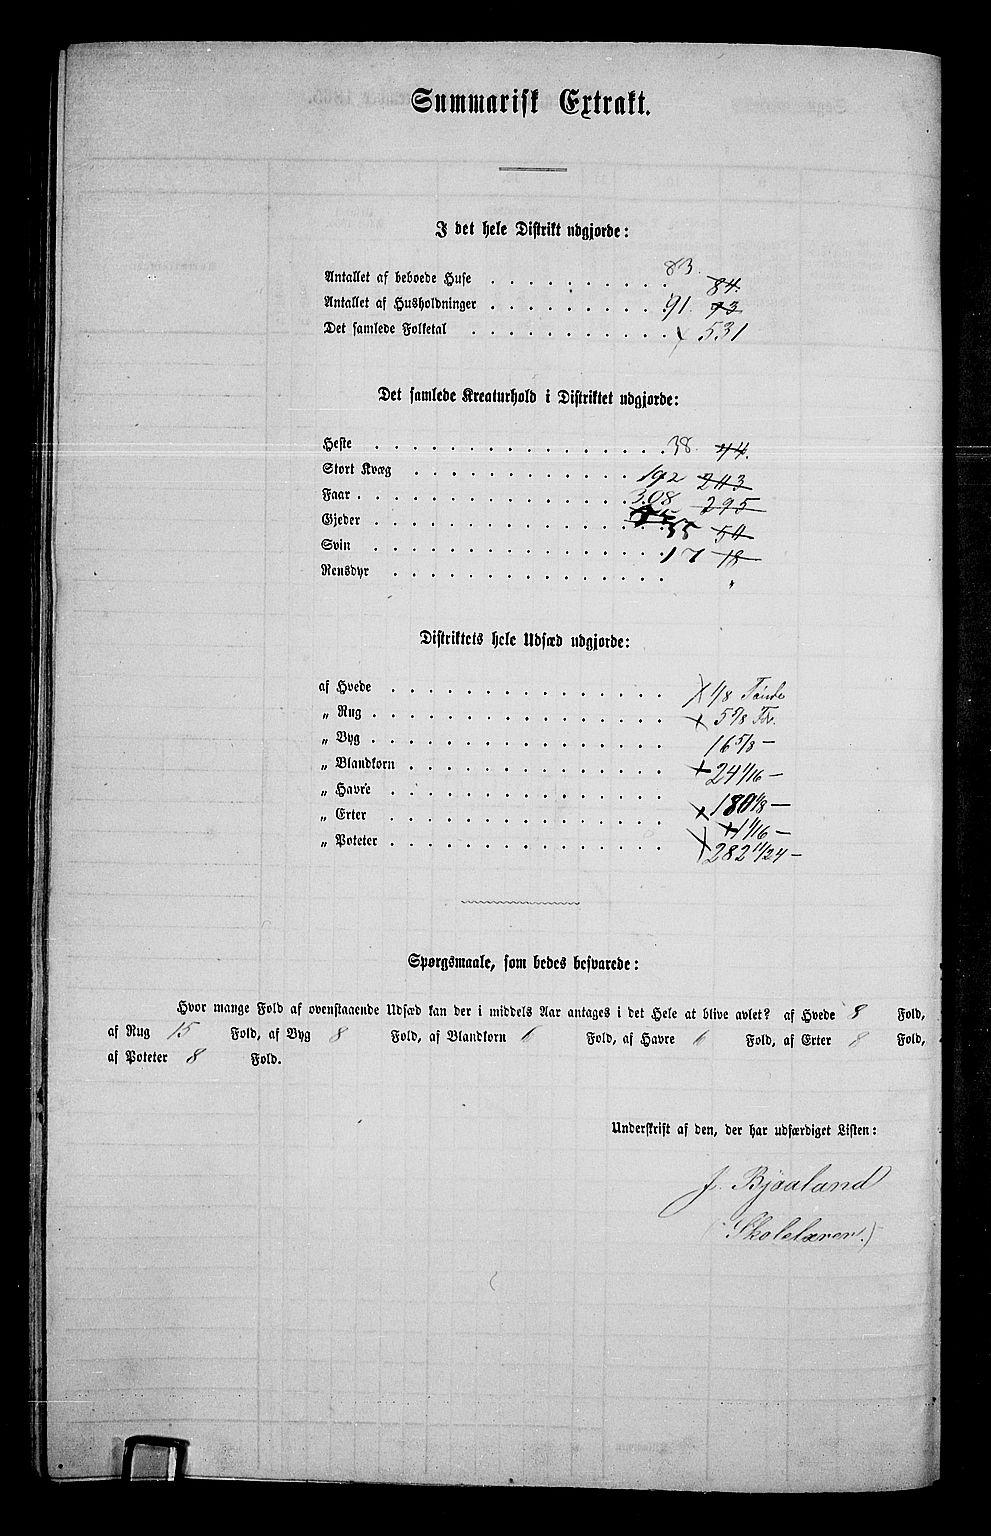 Summarisk Extrakt.
I det hele Distrikt udgjorde:
Antallet af beboede Huse 83. 84.
Antallet af Husholdninger 91. 93
Det samlede Folketal x 531
Det samlede Kreaturhold i Distriktet udgjorde:
Heste 38. 44.
Stort Kvæg 192 203
Faar 308 295
Gjeder 55 50
Svin 17 18
Rensdyr "
Distriktets hele Udsæd udgjorde:
af Hvede x 1/8 Tønde
„ Rug x 5 5/8 Tdr.
„ Byg 16 5/8 —
„ Blandkorn x 24 1/16 —
„ Havre x 180 1/8 —
„ Erter x 1 1/16 —
„ Poteter x 282 11/24 —
Spørgsmaale, som bedes besvarede:
Hvor mange Fold af ovenstaaende Udsæd kan der i middels Aar antages i det Hele at blive avlet? af Hvede 8 Fold,
af Rug 15 Fold, af Byg 8 Fold, af Blandkorn 6 Fold, af Havre 6 Fold, af Erter 8 Fold,
af Poteter 8 Fold.
Underskrift af den, der har udfærdiget Listen:
J. Bjaaland
(Skolelærer.)